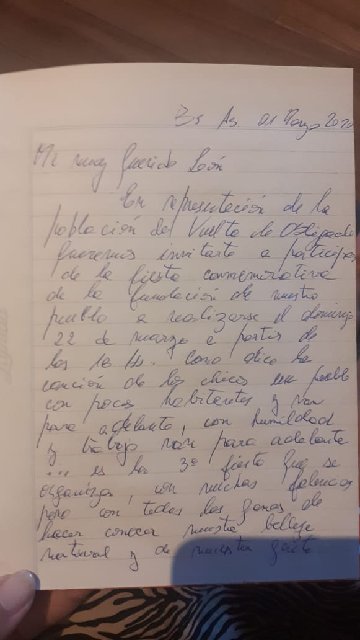 Bs As. 01 Marzo 2020
Mi muy Querido León
En representación de la
población de Vuelta de Obligado
queremos invitarte a participar
de la fiesta conmemorativa
de la fundación de nuestro
pueblo a realizarse el domingo
22 de marzo a partir de
las 18 H. Como dice la
canción de los chicos un pueblo
con pocos habitantes y van
para adelante, con humildad
y trabajo van para adelante
... es la 3º fiesta que se
organiza, con muchas falencias
pero con todas las ganas de
hacer conocer nuestra belleza
natural y de nuestra gente.